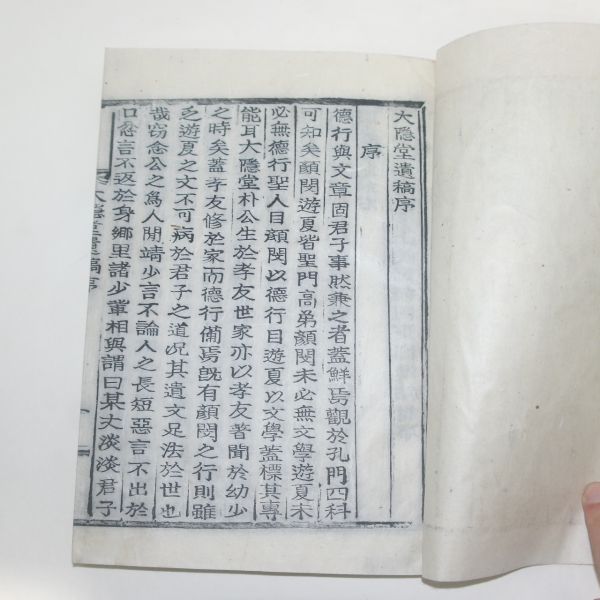 大隱堂遺稿序
序
德行與文章固君子事然兼之者蓋鮮焉觀於孔門四科
可知矣顔閔遊夏皆聖門高弟顔閔未必無文學遊夏未
必無德行聖人目顔閔以德行目遊夏以文學蓋標其專
能耳大隱堂朴公生於孝友世家亦以孝友著聞於幼少
之時矣蓋孝友修於家而德行備焉旣有顔閔之行則雖
乏遊夏之文不可病於君子之道况其遺文足法於世也
哉窃念公之爲人閒靖少言不論人之長短惡言不出於
口忿言不返於身鄉里諸少輩相與謂曰某丈淡淡君子
大隱堂遺稿序